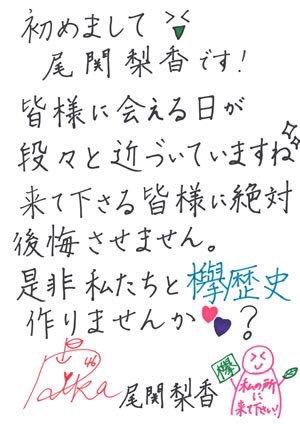 初めまして ><
尾関梨香です!
皆様に会える日が
段々と近づいていますね
来て下さる皆様に絶対
後悔させません。
是非私たちと欅歴史
作りませんか?
46
尾関梨香
欅
私の所
に
来て下さい!